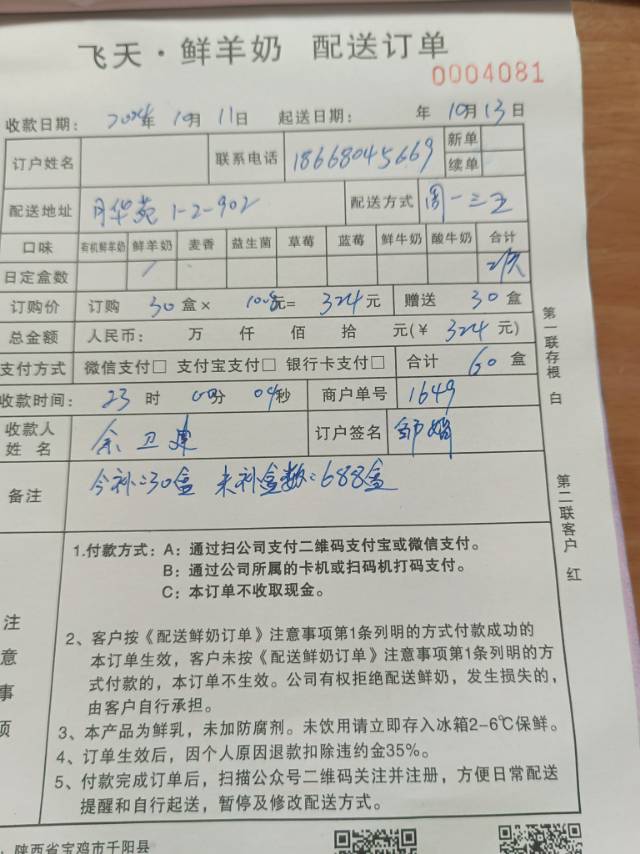 飞天·鲜羊奶 配送订单
0004081
收款日期: 2024年 10月 11日 起送日期: 年 10月 13日
订户姓名 联系电话 18668045669 新单
续单
配送地址 月华苑 1-2-902 配送方式 周一三五
口味 有机鲜羊奶 鲜羊奶 麦香 益生菌 草莓 蓝莓 鲜牛奶 酸牛奶 合计
日定盒数 /
订购价 订购 30 盒× 元= 324 元 赠送 30 盒
总金额 人民币: 万 仟 佰 拾 元(¥ 324 元)
支付方式 微信支付□ 支付宝支付□ 银行卡支付□ 合计 60 盒
收款时间: 23 时 00分 04秒 商户单号 1649
收款人
姓 名 余卫 订户签名 邹娟
备注 今补:30盒 未补盒数:688盒
第一联存根 白
第二联客户 红
注意事项
1.付款方式: A: 通过扫公司支付二维码支付宝或微信支付。
B: 通过公司所属的卡机或扫码机打码支付。
C: 本订单不收取现金。
2、客户按《配送鲜奶订单》注意事项第1条列明的方式付款成功的
本订单生效，客户未按《配送鲜奶订单》注意事项第1条列明的方
式付款的，本订单不生效。公司有权拒绝配送鲜奶，发生损失的，
由客户自行承担。
3、本产品为鲜乳，未加防腐剂。未饮用请立即存入冰箱2-6℃保鲜。
4、订单生效后，因个人原因退款扣除违约金35%。
5、付款完成订单后，扫描公众号二维码关注并注册，方便日常配送
提醒和自行起送，暂停及修改配送方式。
陕西省宝鸡市千阳县